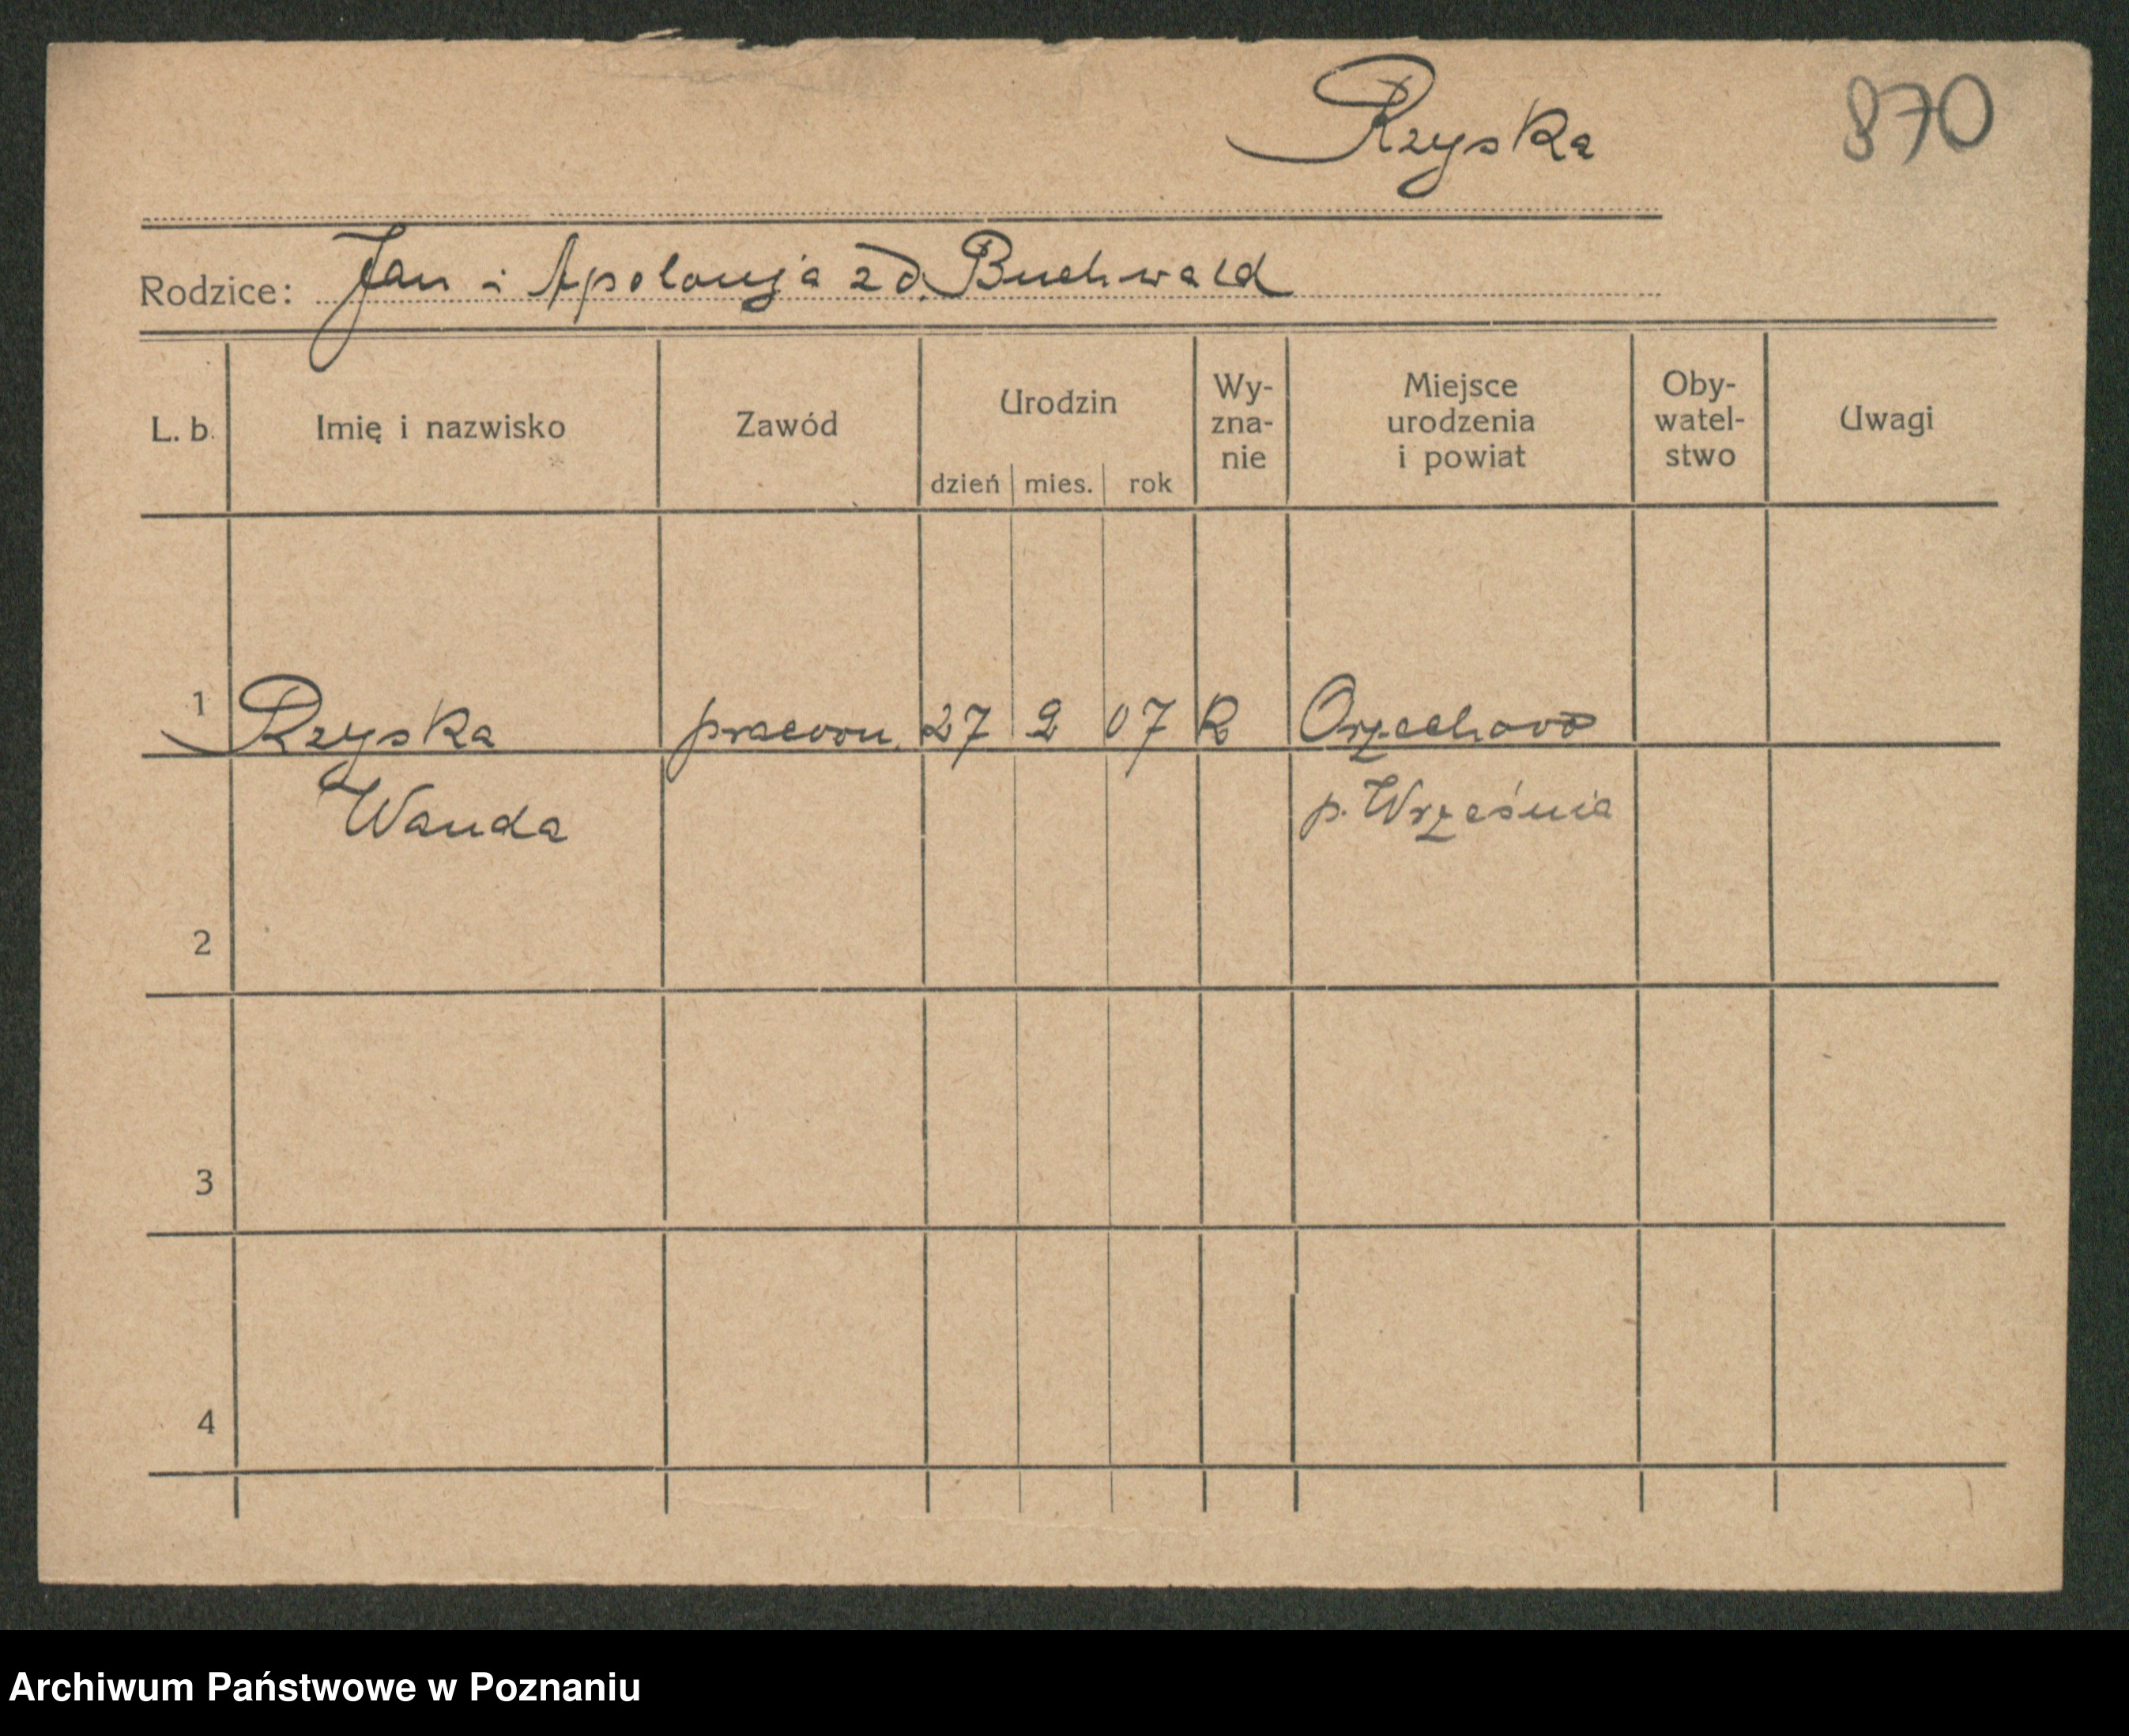 Rzyska
870
Rodzice: Jan i Apolonja z d. Buchwald
L. b. Imię i nazwisko Zawód Urodzin dzień mies. rok Wy-zna-nie Miejsce urodzenia i powiat Oby-watel-stwo Uwagi
1 Rzyska pracown. 27 2 07 R Orzechowo
Wanda p. Września
2
3
4
Archiwum Państwowe w Poznaniu